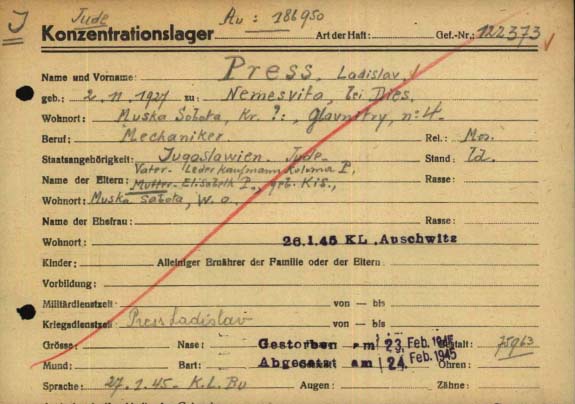 J Jude Au: 186950
Konzentrationslager Art der Haft: Gef.-Nr.: 122373
Name und Vorname: Press, Ladislav,
geb.: 2.11.1927 zu: Nemesvita, bei
Wohnort: Muska Sobota, Kr. ?:, n: 4.
Beruf: Mechaniker Rel.: Mos.
Staatsangehörigkeit: Jugoslawien. Jude Stand: ld.
Name der Eltern: Vater- Lederkaufmann Koloma P, Rasse:
Mutter- Elisabeth P., geb. Kiš,
Wohnort: Muska Sobota, w.o.
Name der Ehefrau: Rasse:
Wohnort: 26.1.45 KL. Auschwitz
Kinder: Alleiniger Ernährer der Familie oder der Eltern:
Vorbildung:
Militärdienstzeit: von — bis
Kriegsdienstzeit: Press Ladislav von — bis
Grösse: Nase: Gestorben am 23. Feb. 1945 Gestalt: 75963
Mund: Bart: Abgesetzt am 24. Feb. 1945 Ohren:
Sprache: 27.1.45- K.L. Bu Augen: Zähne: